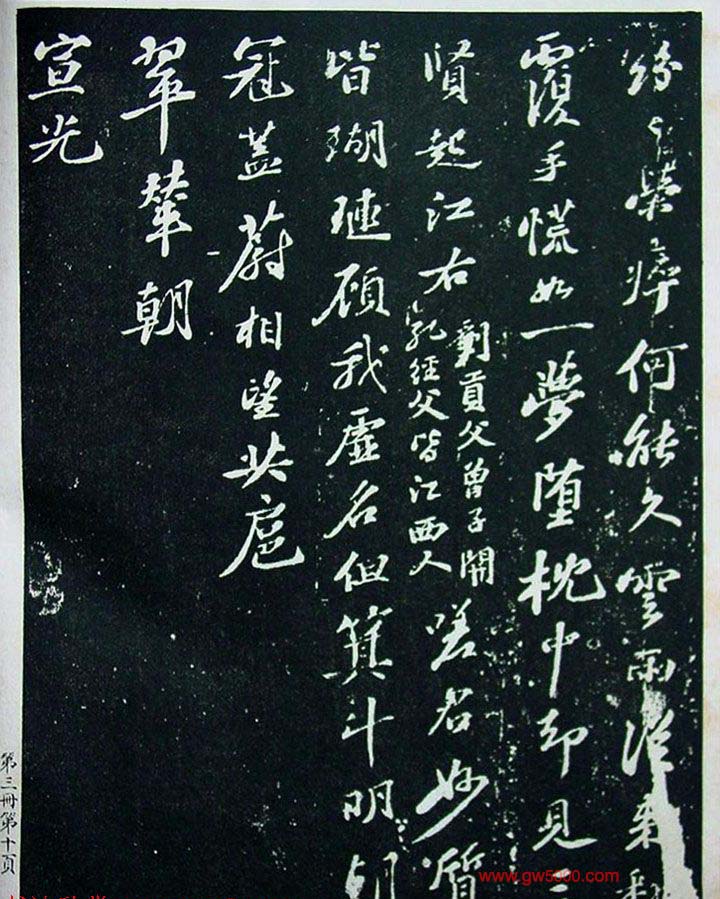 紛々榮瘁何能久雲雨從來翻
覆手慌如一夢墮枕中却見三
賢起江右
劉貢父曾子開
孔經父皆江西人
嗟君妙質
皆瑚璉顧我虛名但箕斗明朝
冠蓋蔚相望共扈
翠輦朝
宣光
第三冊第十頁